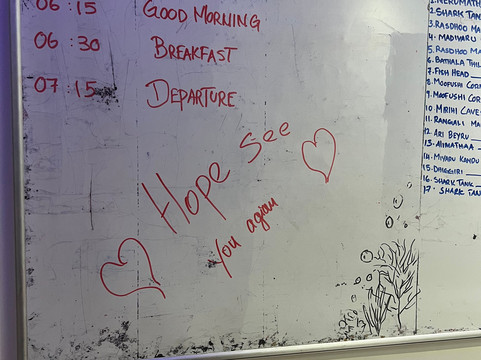 06:15 GOOD MORNING
06:30 BREAKFAST
07:15 DEPARTURE
Hope See
you again
2. SHARK TAN
3. RASDHOO MA
4. MADIVARU
5. RASDHOO MA
6. BATHALA THIL
7. FISH HEAD
8. MOOFUSHI COR
9. MOOFUSHI COR
10. MIRIHI CAVE
11. RANGALI MA
12. ARI BEYRU
13. ALIMATHAA
14. MIYARU KANDU
15. DHIGGIRI
16. SHARK TANK
17. SHARK TAN